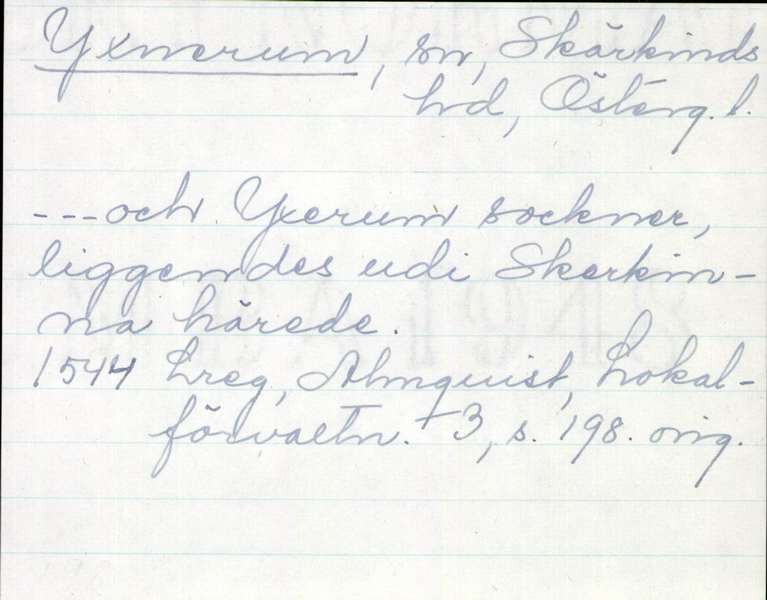 Yxnerum, sn, Skärkinds
hd, Österg. l.
---och Yxerum sockner,
liggendes udi Skerkin-
na härede.
1544 Lreg, Almquist, Lokal-
förvaltn. † 3, s. 198. orig.